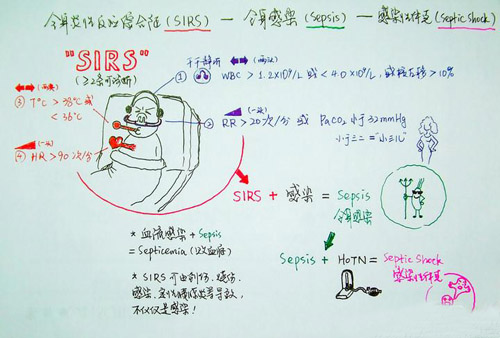 全身炎性反应综合征(SIRS) — 全身感染(Sepsis) — 感染性休克(Septic Shock)
"SIRS"
(≥2条可诊断)
(两读)
① WBC > 1.2×10⁹/L 或 < 4.0×10⁹/L, 或杆左移 > 10%
(两读)
③ T° > 38℃ 或
< 36℃
(一读)
② RR > 20次/分 或 PaCO₂ 小于 32mmHg
小于三二 = "小三儿"
(一读)
④ HR > 90次/分
SIRS + 感染 = Sepsis
全身感染
* 血液感染 + Sepsis
= Septicemia (败血症)
Sepsis + HoTN = Septic Shock
感染性休克
* SIRS 可由创伤、烧伤、
感染、急性胰腺炎等导致,
不仅仅是感染!